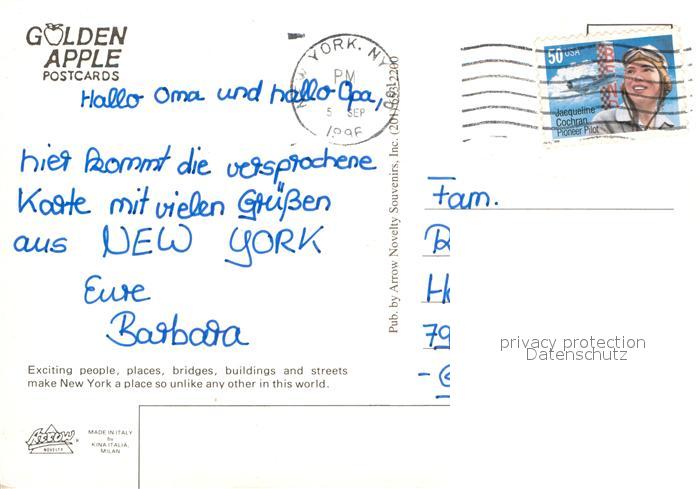 GOLDEN
APPLE
POSTCARDS
NEW YORK, NY
PM
5 SEP
1996
50 USA
Jacqueline
Cochran
Pioneer Pilot
Hallo Oma und hallo Opa,
hier kommt die versprochene
Karte mit vielen Grüßen
aus NEW YORK
Eure
Barbara
Exciting people, places, bridges, buildings and streets
make New York a place so unlike any other in this world.
Arrow
NOVELTY
MADE IN ITALY
by
KINA ITALIA,
MILAN
Pub. by Arrow Novelty Souvenirs, Inc.
Fam.
79
privacy protection
Datenschutz